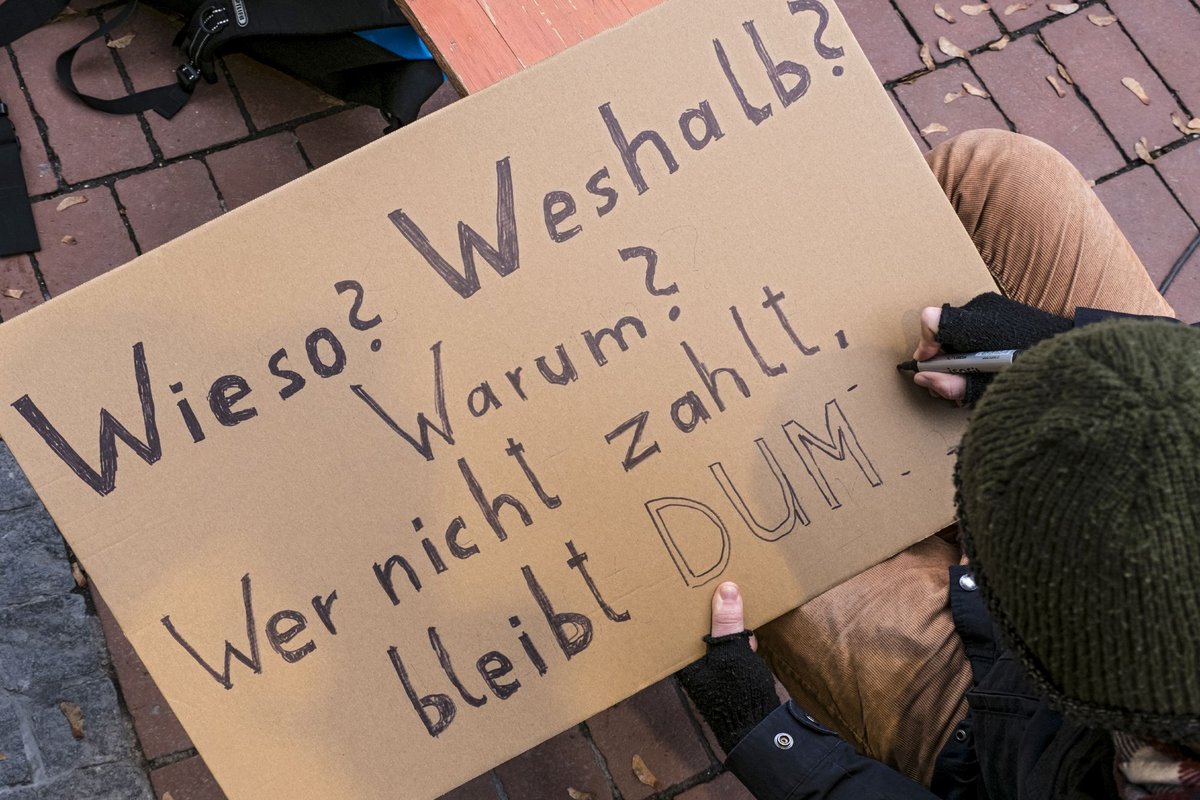 Wieso? Weshalb?
Warum?
Wer nicht zahlt,
bleibt DUM